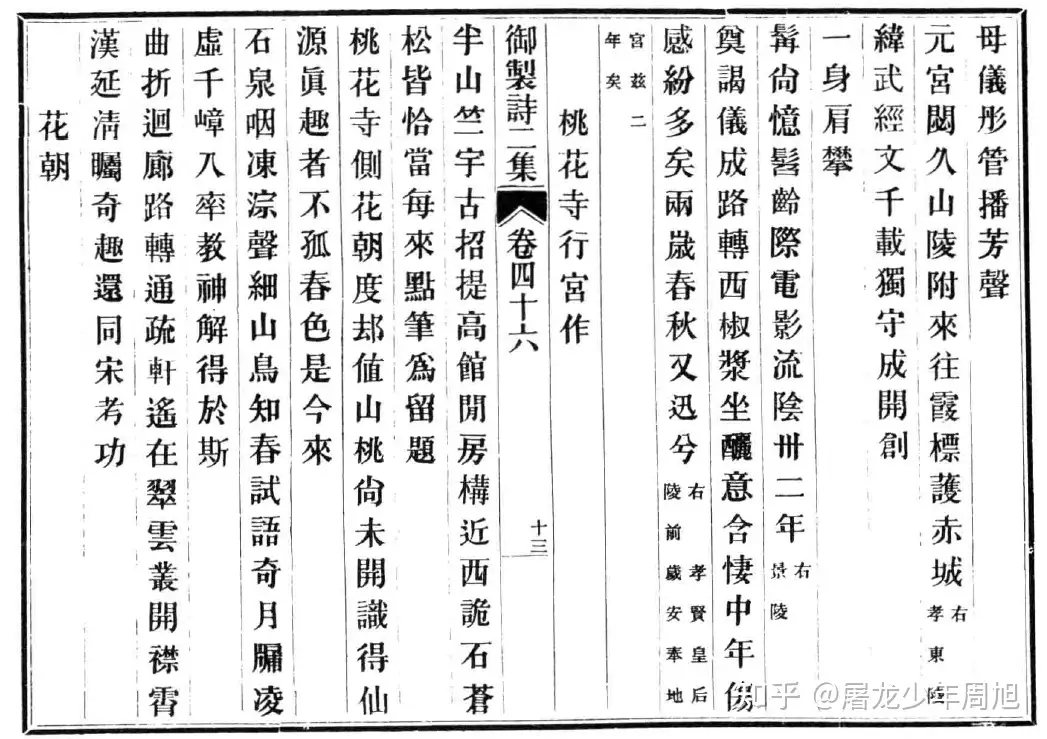 母儀彤管播芳聲
元宮閟久山陵附來往霞標護赤城右孝東陵
緯武經文千載獨守成開創
一身肩攀
髯尙憶髫齡際電影流陰卅二年右景陵
奠謁儀成路轉西椒漿坐釃意含悽中年傷
感紛多矣兩歲春秋又迅兮右孝賢皇后陵前歲安奉地
宮茲二年矣
桃花寺行宮作
御製詩二集 卷四十六 十三
半山竺宇古招提高館閒房構近西詭石蒼
松皆恰當每來點筆爲留題
桃花寺側花朝度却値山桃尙未開識得仙
源眞趣者不孤春色是今來
石泉咽凍淙聲細山鳥知春試語奇月牖凌
虛千嶂入率敎神解得於斯
曲折迴廊路轉通疏軒遙在翠雲叢開襟霄
漢延淸矚奇趣還同宋考功
花朝
知乎 @屠龙少年周旭